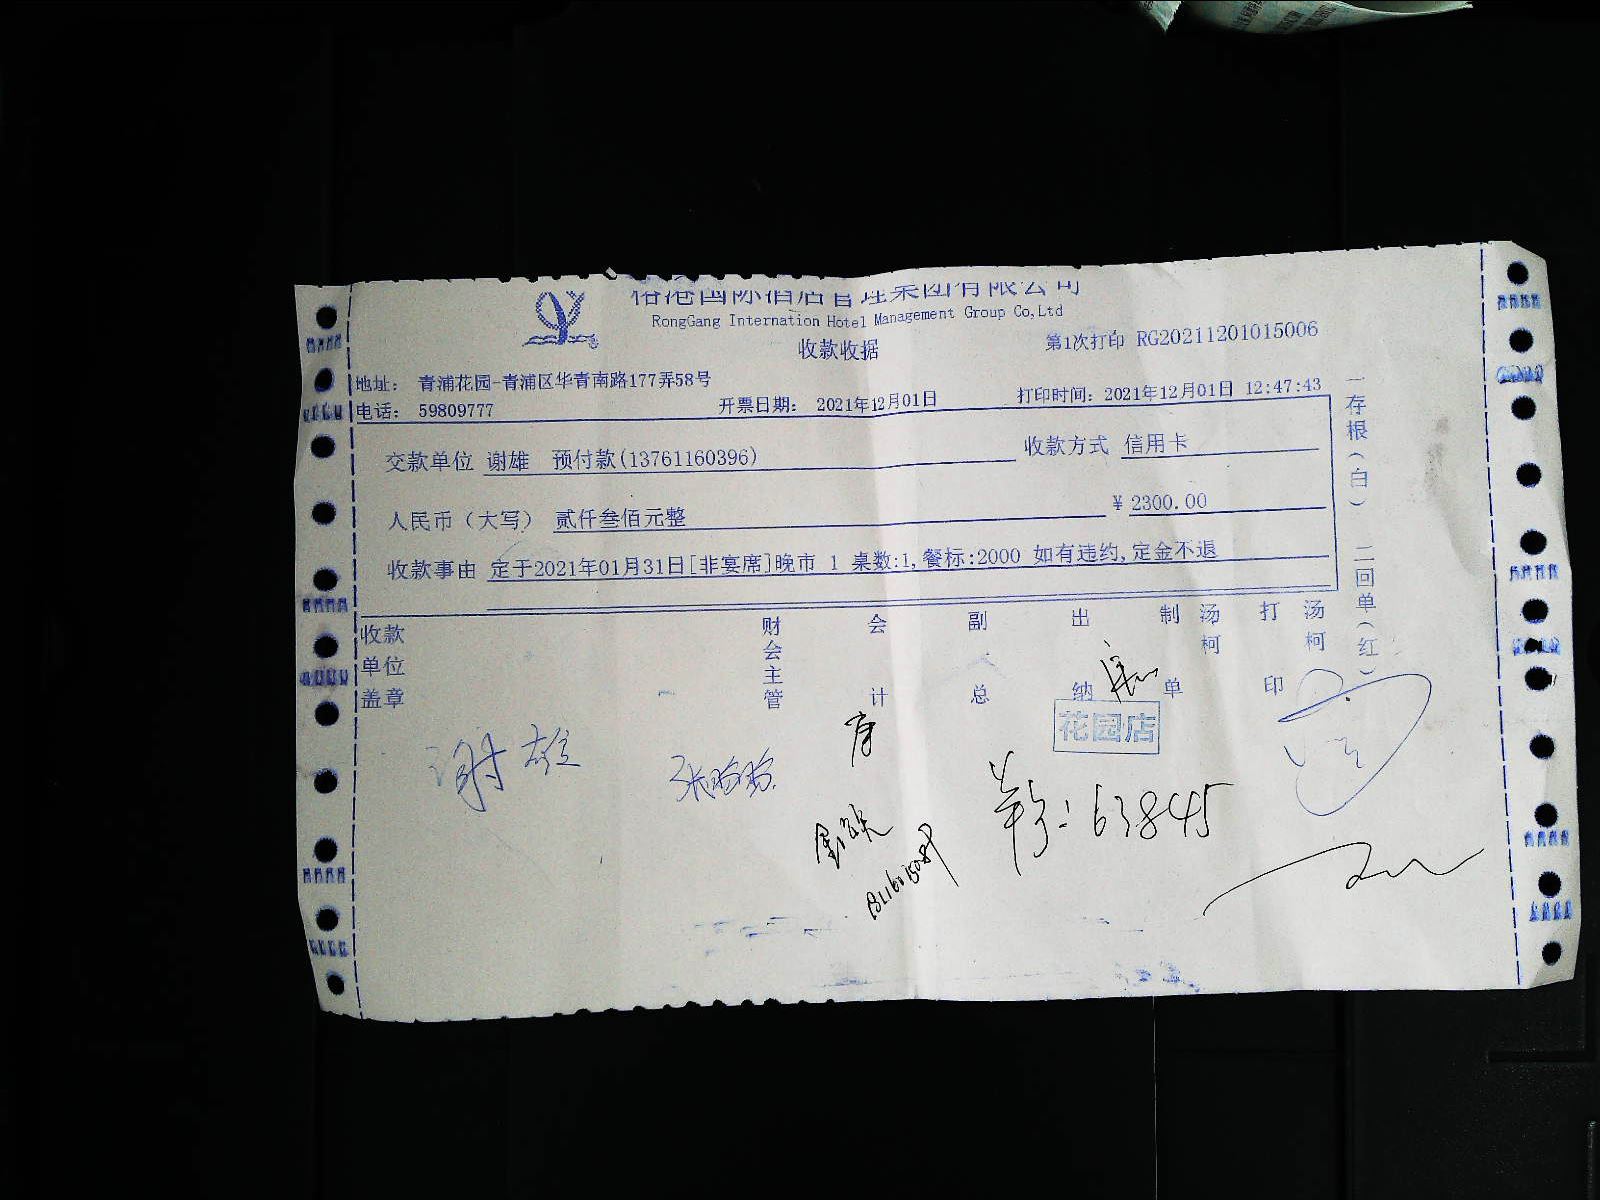 港国际酒店管理集团有限公司
RongGang Internation Hotel Management Group Co,Ltd
收款收据
第1次打印 RG20211201015006
地址： 青浦花园-青浦区华青南路177弄58号
电话： 59809777
开票日期： 2021年12月01日
打印时间：2021年12月01日 12:47:43
交款单位 谢雄 预付款(13761160396)
收款方式 信用卡
人民币（大写） 贰仟叁佰元整
¥ 2300.00
收款事由 定于2021年01月31日[非宴席]晚市 1 桌数:1,餐标:2000 如有违约,定金不退
一存根（白） 二回单（红）
收款单位盖章
财会主管
会计
副总
出纳
制单
汤柯
打印
汤柯
花园店
谢雄
单号：63845